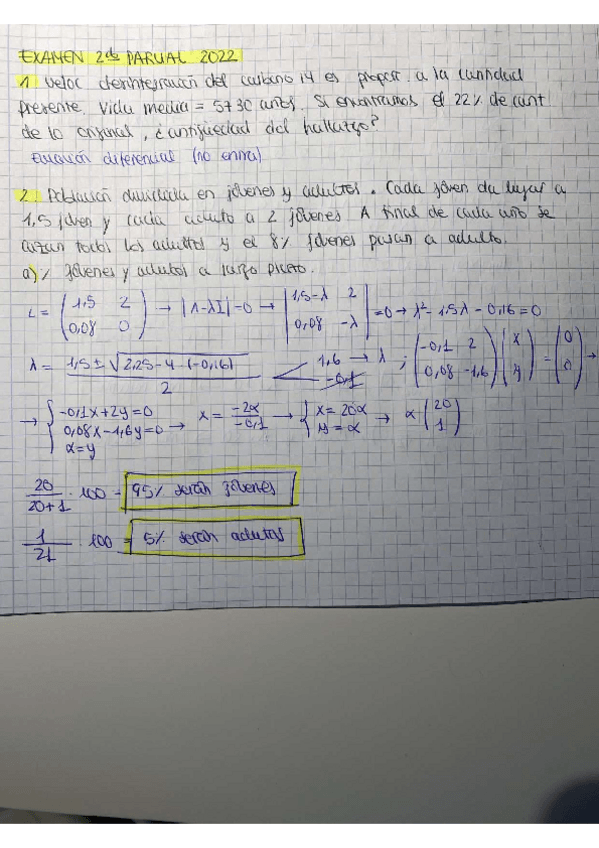 EXAMEN 2do PARCIAL 2022
1 Veloc desintegración del carbono 14 es propor. a la cantidad
presente. Vida media = 5730 años. Si encontramos el 22% de cant
de lo original, ¿antigüedad del hallazgo?
Ecuación diferencial (no entra)
2. Población dividida en jóvenes y adultos. Cada joven da lugar a
1,5 joven y cada adulto a 2 jóvenes A final de cada año se
cazan todos los adultos y el 8% jóvenes pasan a adulto.
a) % Jóvenes y adultos a largo plazo.
L = (1,5 2 / 0,08 0) → |A-λI|=0 → |1,5-λ 2 / 0,08 -λ| =0 → λ²-1,5λ-0,16=0
λ = (1,5 ± √2,25-4·(-0,16)) / 2 < 1,6 → λ / -0,1 ; (-0,1 2 / 0,08 -1,6) (x / y) = (0 / 0) →
→ { -0,1x+2y=0 / 0,08x-1,6y=0 / α=y → x = -2α / -0,1 → { x=20α / y=α → α (20 / 1)
20 / 20+1 · 100 = 95% serán jóvenes
1 / 21 · 100 = 5% serán adultos